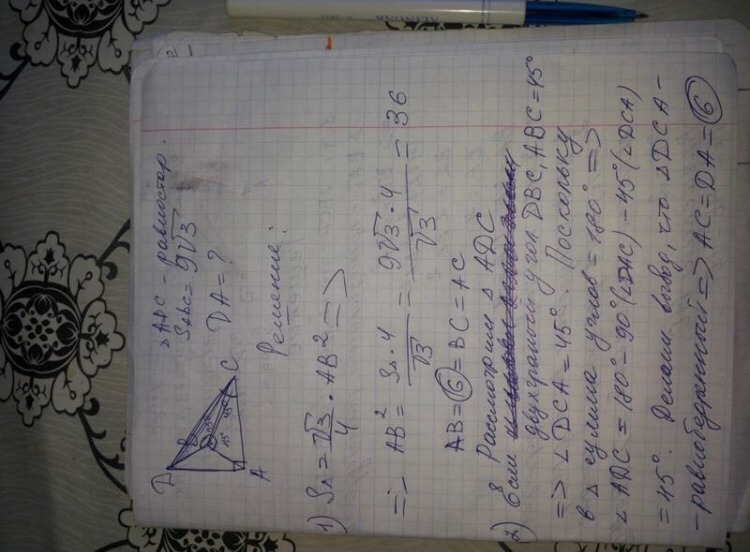 △ABC - равностор.
S ABC = 9√3
DA = ?
D
B
C
A
45°
45°
Решение:
1) S△ = √3/4 · AB² =>
=> AB² = S△·4/√3 = 9√3·4/√3 = 36
AB = 6 = BC = AC
2) Рассмотрим △ ADC
Если двухгранный угол DBC, ABC = 45°
=> ∠DCA = 45°. Поскольку
в △ сумма углов = 180° =>
∠ADC = 180° - 90°(∠DAC) - 45°(∠DCA)
= 45°. Делаем вывод, что △DCA -
- равнобедренный => AC = DA = 6